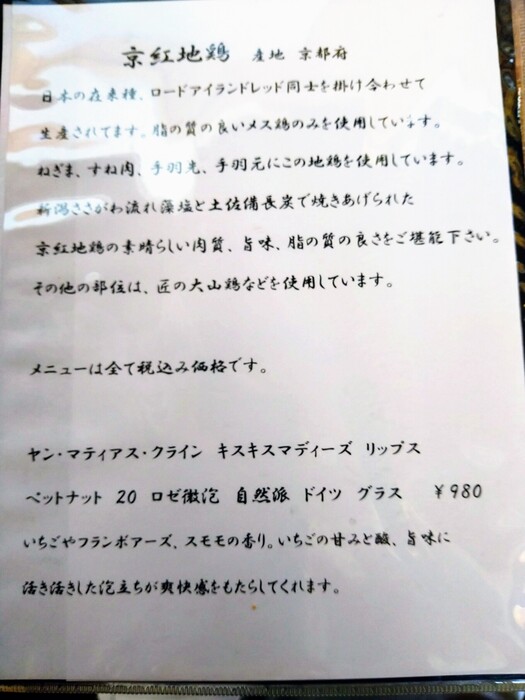 京紅地鶏 産地 京都府
日本の在来種、ロードアイランドレッド同士を掛け合わせて
生産されてます。脂の質の良いメス鶏のみを使用しています。
ねぎま、すね肉、手羽先、手羽元にこの地鶏を使用しています。
新潟ささがわ流れ藻塩と土佐備長炭で焼きあげられた
京紅地鶏の素晴らしい肉質、旨味、脂の質の良さをご堪能下さい。
その他の部位は、匠の大山鶏などを使用しています。
メニューは全て税込み価格です。
ヤン・マティアス・クライン キスキスマディーズ リップス
ペットナット 20 ロゼ微泡 自然派 ドイツ グラス ¥980
いちごやフランボアーズ、スモモの香り。いちごの甘みと酸、旨味に
活き活きした泡立ちが爽快感をもたらしてくれます。